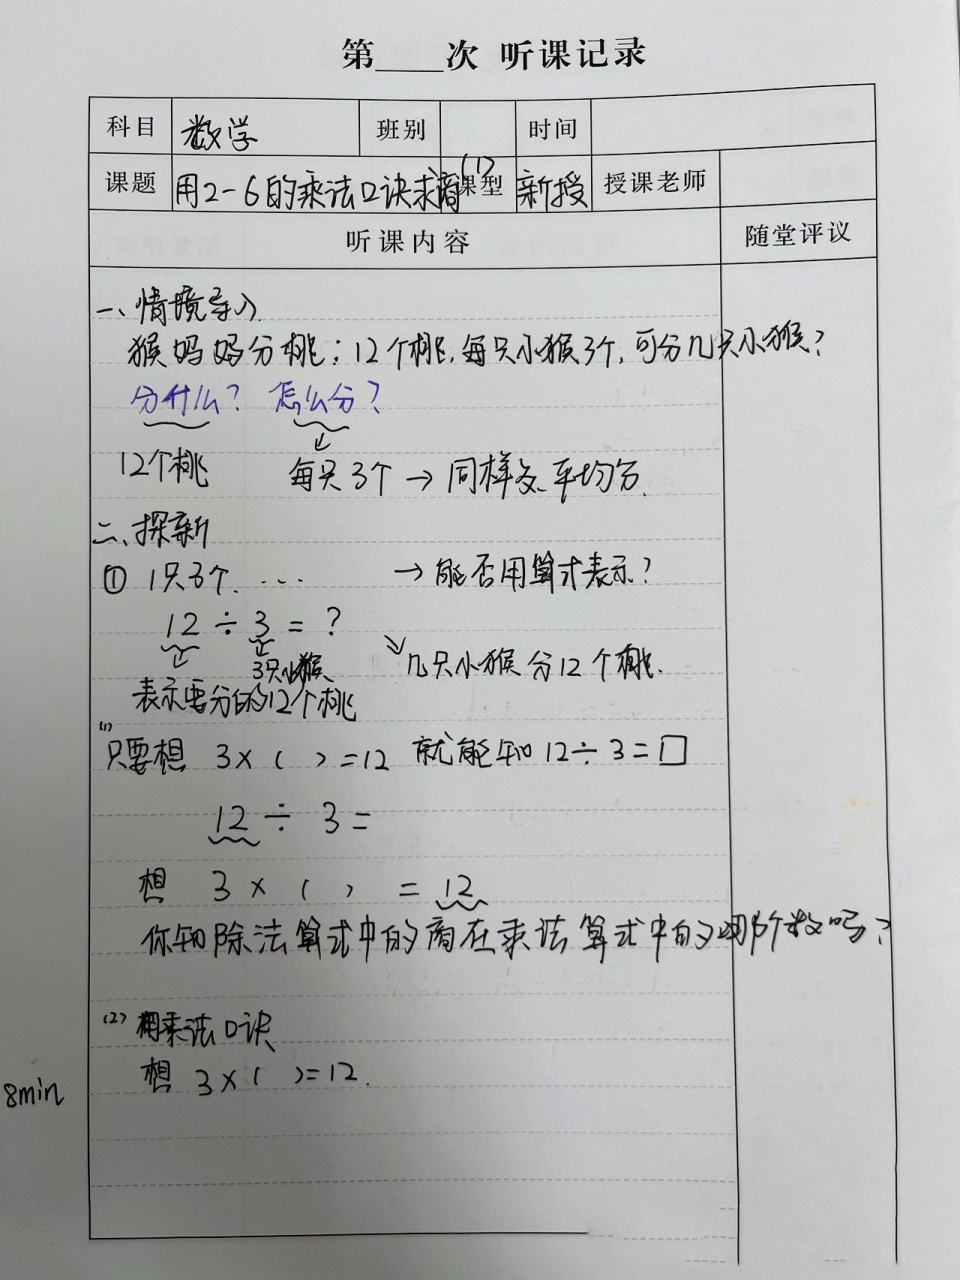 第____次 听课记录
科目 数学 班别 时间
课题 用2-6的乘法口诀求商(1) 课型 新授 授课老师
听课内容 随堂评议
一、情境导入
猴妈妈分桃：12个桃,每只小猴3个,可分几只小猴？
分什么？ 怎么分？
12个桃 每只3个 → 同样多 平均分
二、探新
① 1只3个 ... → 能否用算式表示？
12 ÷ 3 = ?
3只小猴 几只小猴分12个桃.
表示要分的12个桃
(1)
只要想 3×( )=12 就能知12÷3=□
12 ÷ 3 =
想 3 × ( ) = 12
你知除法算式中的商在乘法算式中的是哪个数吗？
(2) 用乘法口诀
想 3×( )=12.
8min